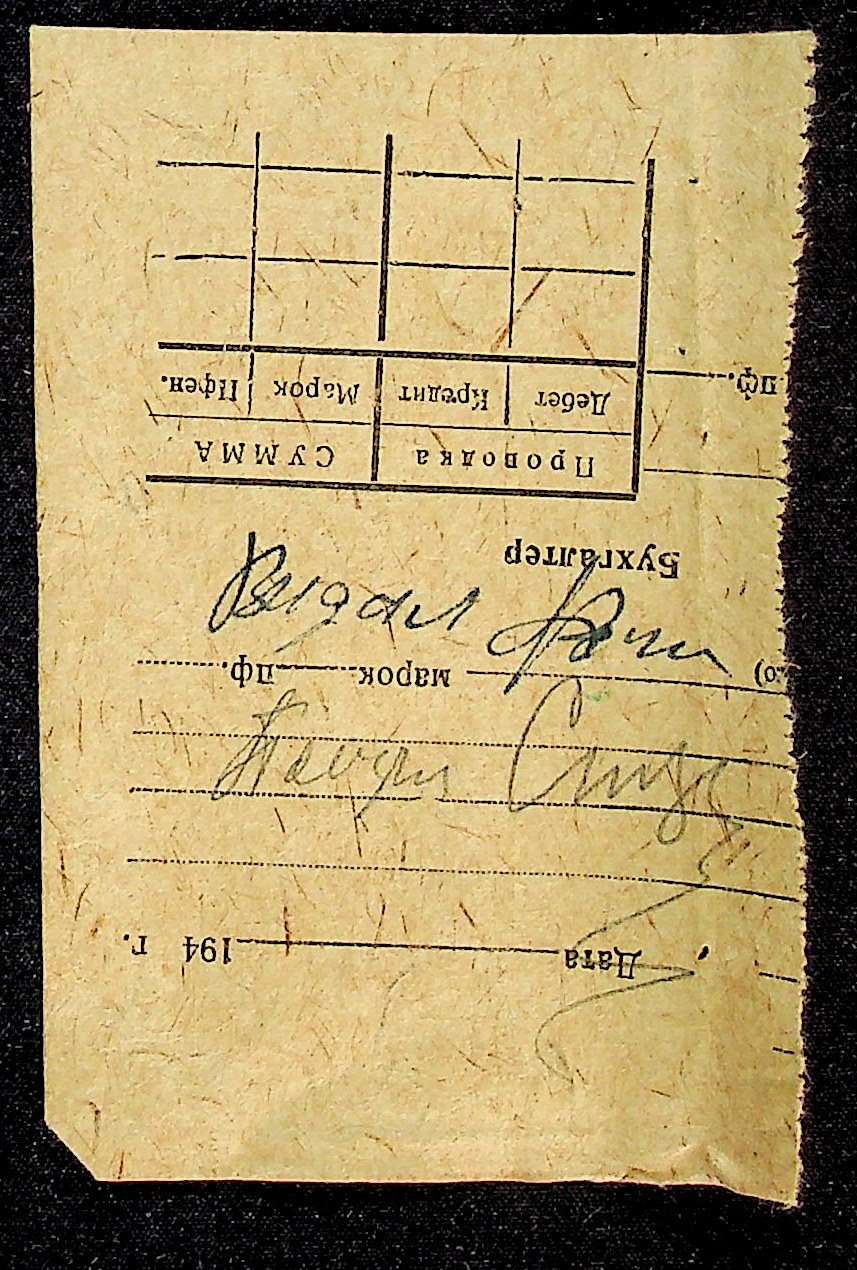 Дата 194 г.
марок пф.
Выдал
Бухгалтер
Проводка СУММА
Дебет Кредит Марок Пфен.
пф.